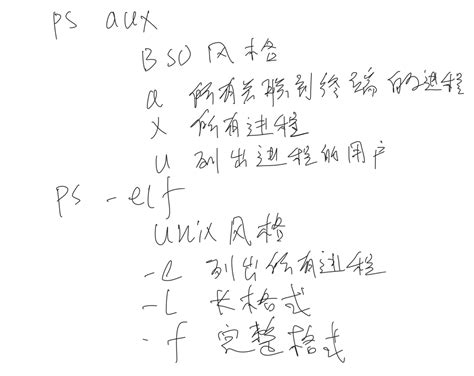 ps aux
BSD风格
a 所有关联到终端的进程
x 所有进程
u 列出进程的用户
ps -elf
unix风格
-e 列出所有进程
-l 长格式
-f 完整格式